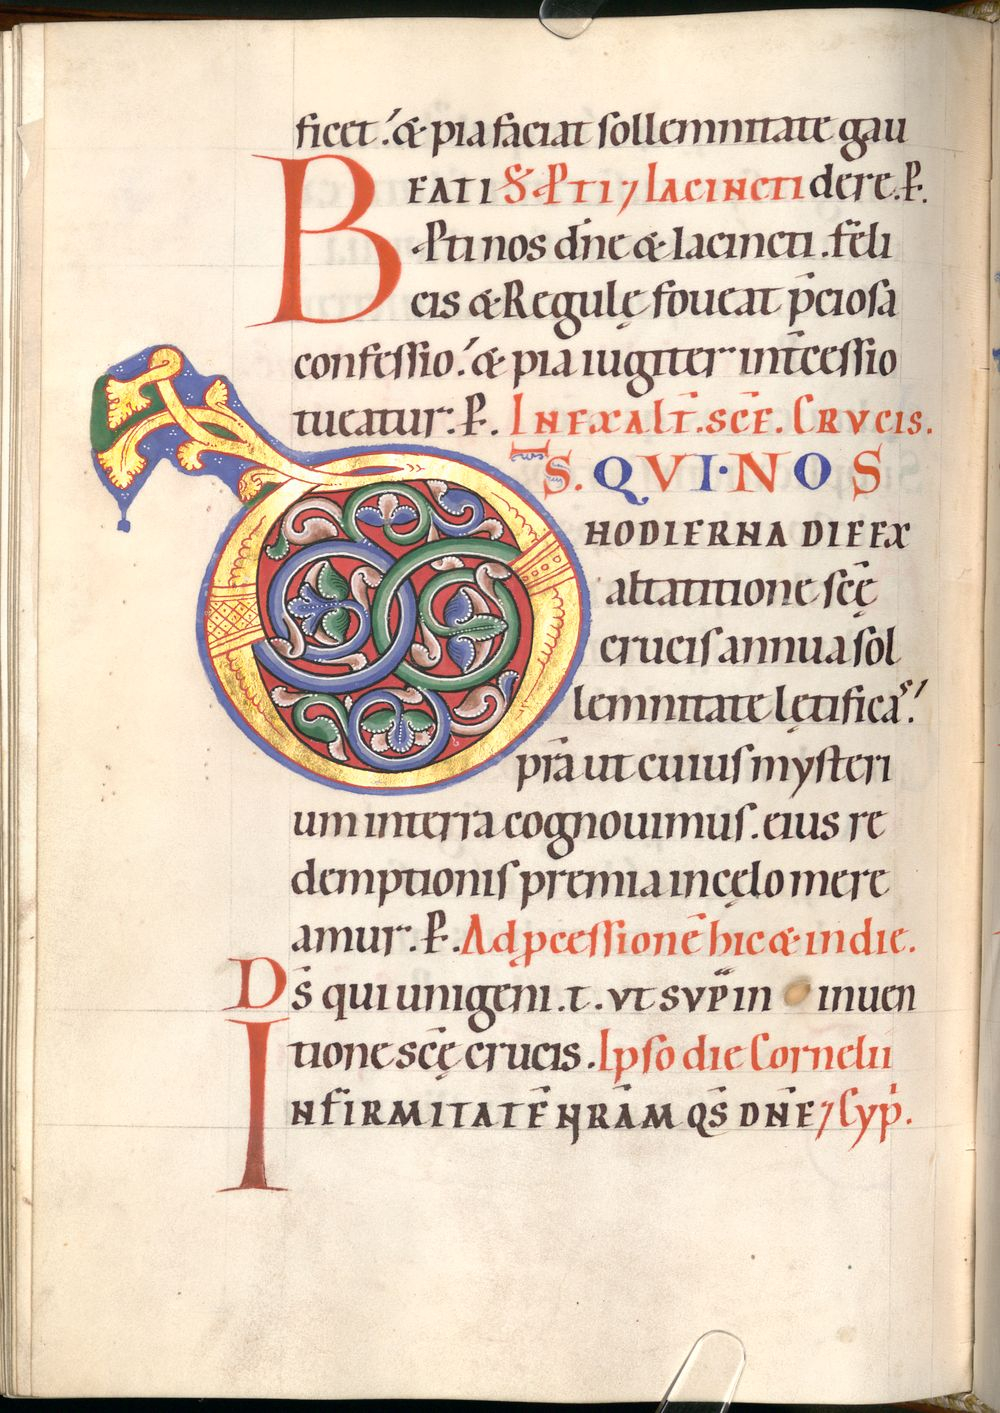 ficet. & pia faciat sollemnitate gau
BEATI S. P̄ti ⁊ Iacincti dere. P̄.
P̄ti nos dn̄e & Iacincti. feli
cis & Regulę foueat p̄ciosa
confessio. & pia iugiter int̄cessio
tueatur. P̄. IN EXALT̄. SC̄E. CRUCIS.
DS̄. QVI·NOS
HODIERNA DIE EX
altatitione sc̄ę
crucis annua sol
lemnitate lętificas.
p̄ra ut cuius mysteri
um in terra cognouimus. eius re
demptionis premia in cęlo mere
amur. P̄. Ad p̱cessionē hic & in die.
DS̄ qui unigeni. t. VT SVP̄ in inuen
tione sc̄ę crucis. Ipso die Cornelii
INFIRMITATĒ N̄RAM QS̄ DN̄E ⁊ Cyp̄.